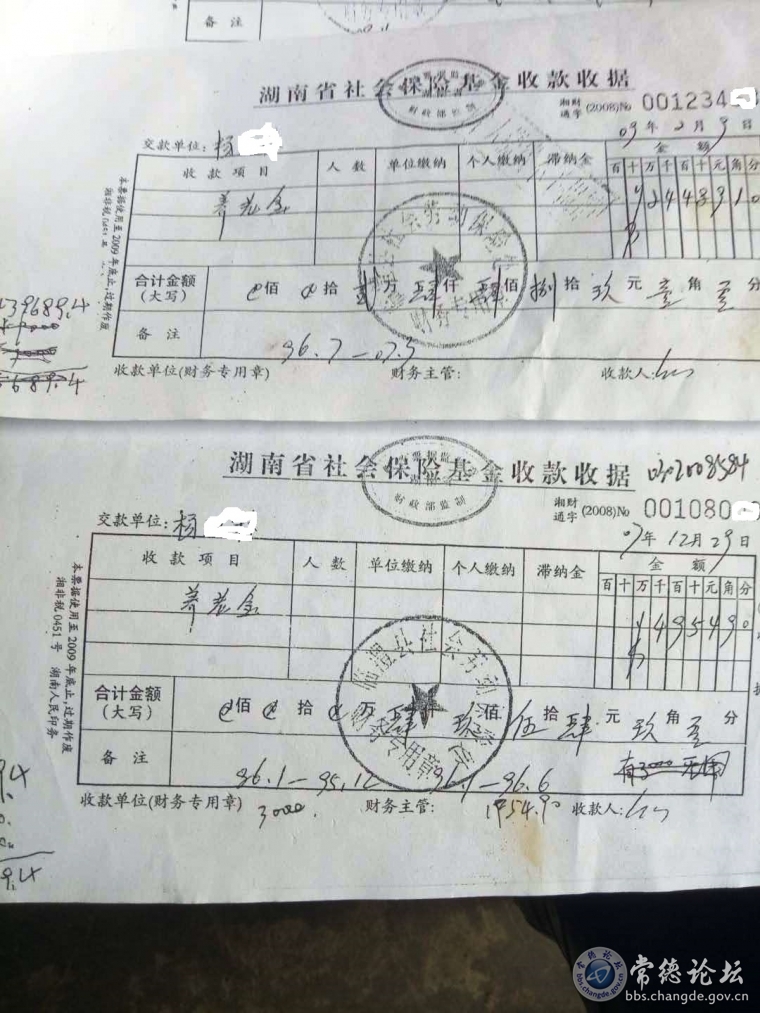 备 注
湖南省社会保险基金收款收据
财政部监制
湘财通字 (2008)№ 001234
09年2月9日
交款单位: 杨
收 款 项 目 人 数 单位缴纳 个人缴纳 滞纳金 金 额
百十万千百十元角分
养老金 ¥2448910
本票据使用至2009年底止,过期作废
合计金额(大写) 佰 拾 贰万 肆仟 肆佰 捌拾 玖元 壹角 分
备 注 96.7—07.5
39689.4
收款单位(财务专用章) 财务主管: 收款人:
湖南省社会保险基金收款收据 0302008584
财政部监制
湘财通字 (2008)№ 001080
07年12月29日
交款单位: 杨
收 款 项 目 人 数 单位缴纳 个人缴纳 滞纳金 金 额
百十万千百十元角分
养老金 ¥495490
本票据使用至2009年底止,过期作废
湘非税0451号 湖南人民印务
临澧县社会劳动保险
财务专用章
合计金额(大写) 佰 拾 万 肆仟 玖佰 伍拾 肆元 玖角 分
备 注 96.1—95.12 96.1—96.6
收款单位(财务专用章) 3000. 财务主管: 1954.90 收款人:
9.4
常德论坛
bbs.changde.gov.cn